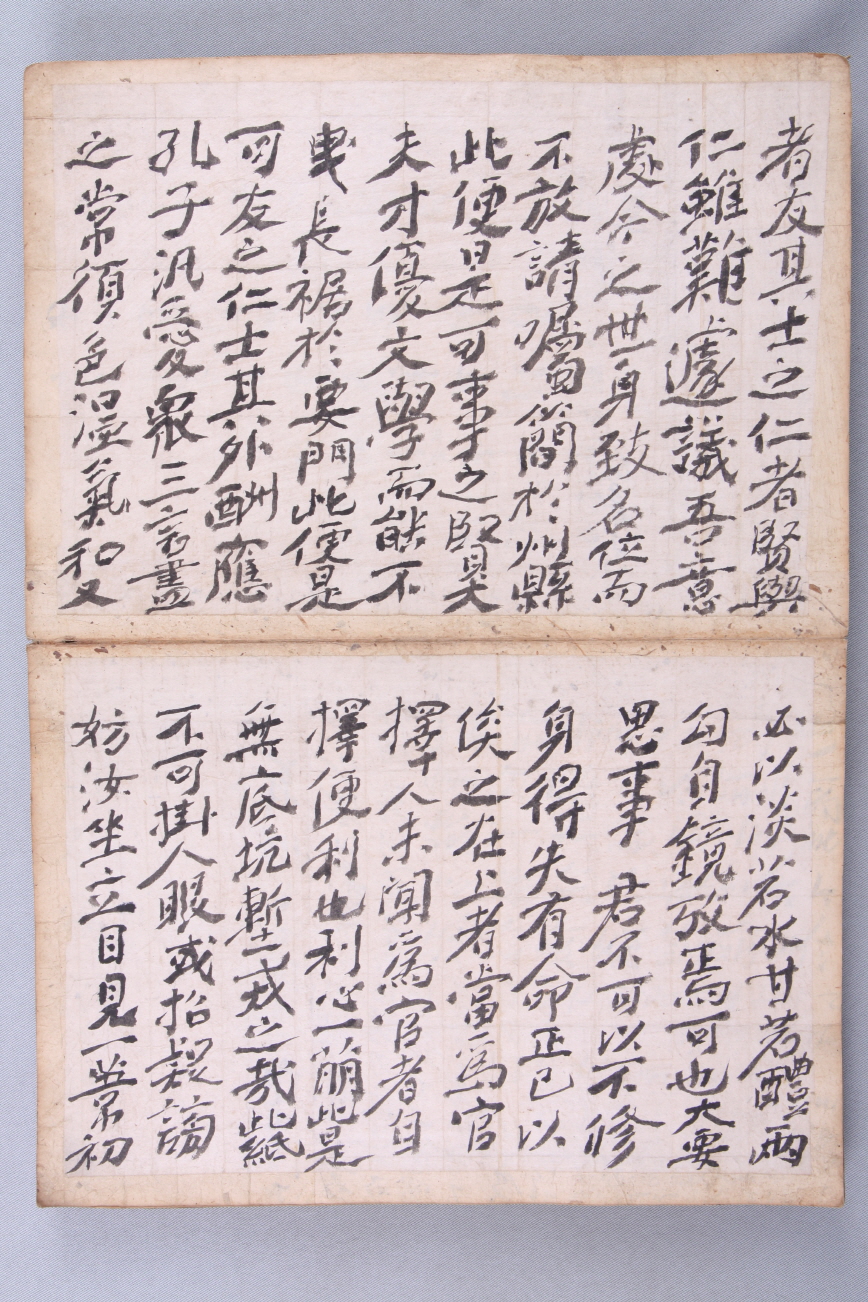 者友其士之仁者賢與
仁雖難遽議吾意
處今之世身致名位而
不放請囑簡於州縣
此便是可事之賢大
夫才優文學而能不
曳長裾於要門此便是
可友之仁士其外酬應
孔子汎愛衆三字盡
之常須色溫氣和又
必以淡若水甘若醴兩
句自鏡攷焉可也大要
思事君不可以不修
身得失有命正己以
俟之在上者當爲官
擇人未聞爲官者自
擇便利也利心一萌此是
無底坑塹戒之哉此紙
不可掛人眼或招疑謗
妨汝坐立目見一 初